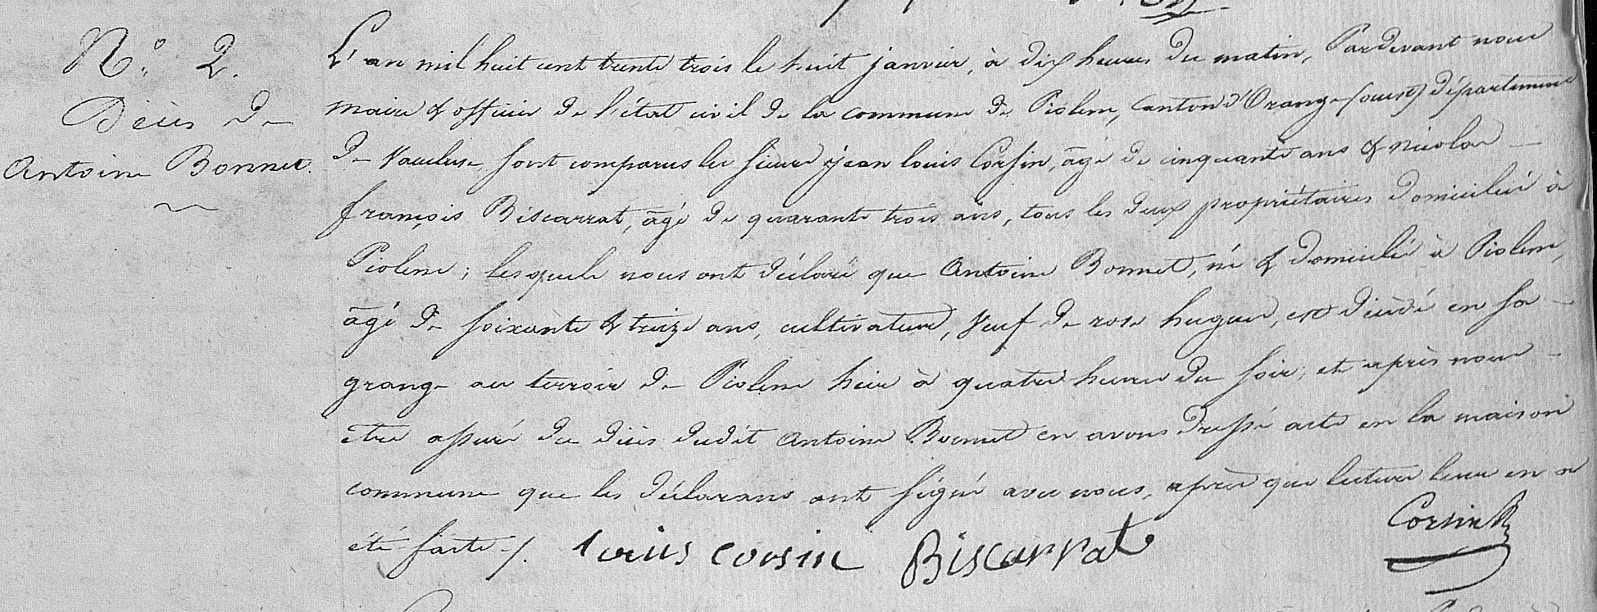 N.° 2.
Décès de
Antoine Bonnet.
L'an mil huit cent trente trois le huit janvier, à dix heures du matin, Pardevant nous
maire & officier de l'état civil de la commune de Piolenc, canton d'Orange (ouest) département
de Vaucluse, sont comparus les sieurs jean louis Corsin, âgé de cinquante ans & nicolas
françois Biscarrat, âgé de quarante trois ans, tous les deux propriétaires domiciliés à
Piolenc; lesquels nous ont déclaré que Antoine Bonnet, né & domicilié à Piolenc,
âgé de soixante & treize ans, cultivateur, Veuf de rose hugues, est décédé en sa
grange au terroir de Piolenc hier à quatre heures du soir, et après nous
être assuré du décès dudit Antoine Bonnet en avons dressé acte en la maison
commune que les déclarans ont signé avec nous, après que lecture leur en a
été faite ./.
louis corsin Biscarrat
Corsin